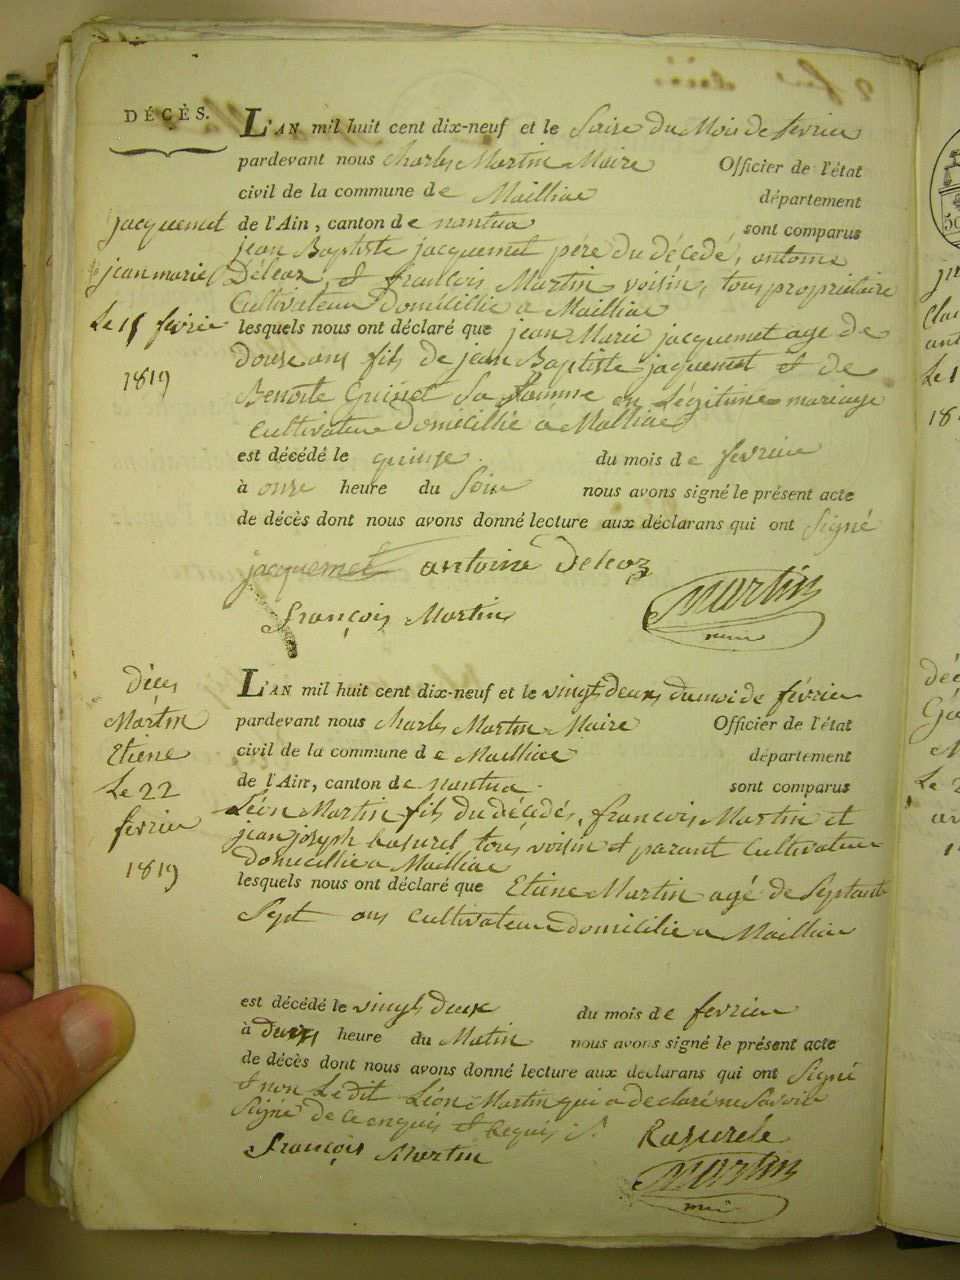 DÉCÈS.
L'AN mil huit cent dix-neuf et le Saise du Mois de fevrier
pardevant nous Charles Martin Maire Officier de l'état
civil de la commune de Mailliac département
jacquemet
de l'Ain, canton de nantua sont comparus
jean Baptiste jacquemet père du décedé, antoine
jean marie
Deleaz et francois Martin voisin, tous propriétaire
Cultivateur Domicillie a Mailliac
Le 15 fevrier
lesquels nous ont déclaré que jean Marie jacquemet age de
1819
douse ans fils de jean Baptiste jacquemet et de
Benoite Guinet Sa famme en Légitime mariage
Cultivateur Domicillié a Malliac
est décédé le quinse du mois de fevrier
à onse heure du Soir nous avons signé le présent acte
de décès dont nous avons donné lecture aux déclarans qui ont Signé
jacquemet antoine Deleaz
françois Martin Martin
mair
Déces
Martin
Etiene
Le 22
fevrier
1819
L'AN mil huit cent dix-neuf et le vingt deux du moi de février
pardevant nous Charles Martin Maire Officier de l'état
civil de la commune de Mailliac département
de l'Ain, canton de nantua sont comparus
Léon Martin fils du décedés, francois Martin et
jean joseph Rasurel tous voisin et parant Cultivateur
Domicillie a Mailliac
lesquels nous ont déclaré que Etiene Martin agé de Septante
Sept ans Cultivateur Domicilie a Mailliac
est décédé le vingt deux du mois de fevrier
à deux heure du Matin nous avons signé le présent acte
de décès dont nous avons donné lecture aux declarans qui ont Signé
et non Le dit Léon Martin qui a declaré ne Savoir
Signé de ce enquis et Requis
Rasurele
françois Martin
Martin
mair